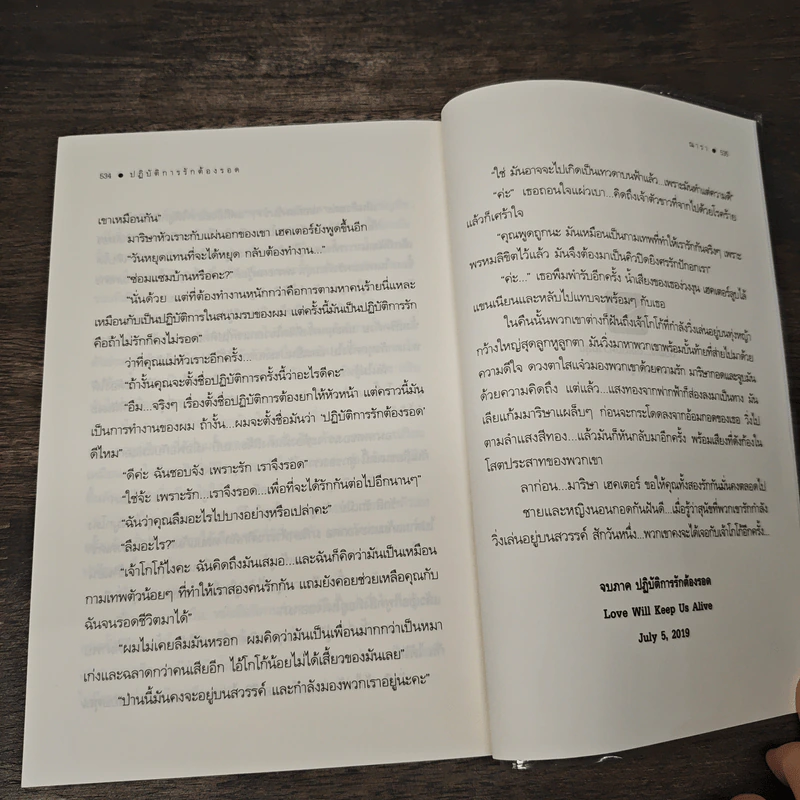 534 ● ปฏิบัติการรักต้องรอด
เขาเหมือนกัน"
มาริษาหัวเราะกับแผ่นอกของเขา เฮคเตอร์ยังพูดขึ้นอีก
"วันหยุดแทนที่จะได้หยุด กลับต้องทำงาน..."
"ซ่อมแซมบ้านหรือคะ?"
"นั่นด้วย แต่ที่ต้องทำงานหนักกว่าคือการตามหาคนร้ายนี่แหละ
เหมือนกับเป็นปฏิบัติการในสนามรบของผม แต่ครั้งนี้มันเป็นปฏิบัติการรัก
คือถ้าไม่รักก็คงไม่รอด"
ว่าที่คุณแม่หัวเราะอีกครั้ง...
"ถ้างั้นคุณจะตั้งชื่อปฏิบัติการครั้งนี้ว่าอะไรดีคะ"
"อืม...จริงๆ เรื่องตั้งชื่อปฏิบัติการต้องยกให้หัวหน้า แต่คราวนี้มัน
เป็นการทำงานของผม ถ้างั้น...ผมจะตั้งชื่อมันว่า 'ปฏิบัติการรักต้องรอด'
ดีไหม"
"ดีค่ะ ฉันชอบจัง เพราะรัก เราจึงรอด"
"ใช่จ้ะ เพราะรัก...เราจึงรอด...เพื่อที่จะได้รักกันต่อไปอีกนานๆ"
"ฉันว่าคุณลืมอะไรไปบางอย่างหรือเปล่าคะ"
"ลืมอะไร?"
"เจ้าโกโก้ไงคะ ฉันคิดถึงมันเสมอ...และฉันก็คิดว่ามันเป็นเหมือน
กามเทพตัวน้อยๆ ที่ทำให้เราสองคนรักกัน แถมยังคอยช่วยเหลือคุณกับ
ฉันจนรอดชีวิตมาได้"
"ผมไม่เคยลืมมันหรอก ผมคิดว่ามันเป็นเพื่อนมากกว่าเป็นหมา
เก่งและฉลาดกว่าคนเสียอีก ไอ้โกโก้น้อยไม่ได้เสี้ยวของมันเลย"
"ป่านนี้มันคงจะอยู่บนสวรรค์ และกำลังมองพวกเราอยู่นะคะ"
ณารา ● 535
"ใช่ มันอาจจะไปเกิดเป็นเทวดาบนฟ้าแล้ว...เพราะมันทำแต่ความดี"
"ค่ะ" เธอถอนใจแผ่วเบา...คิดถึงเจ้าตัวขาวที่จากไปด้วยโรคร้าย
แล้วก็เศร้าใจ
"คุณพูดถูกนะ มันเหมือนเป็นกามเทพที่ทำให้เรารักกันจริงๆ เพราะ
พรหมลิขิตไว้แล้ว มันจึงต้องมาเป็นคิวปิดยิงศรรักปักอกเรา"
"ค่ะ..." เธอพึมพำรับอีกครั้ง น้ำเสียงของเธอง่วงงุน เฮคเตอร์ลูบไล้
แขนเนียนและหลับไปแทบจะพร้อมๆ กับเธอ
ในคืนนั้นพวกเขาต่างก็ฝันถึงเจ้าโกโก้ที่กำลังวิ่งเล่นอยู่บนทุ่งหญ้า
กว้างใหญ่สุดลูกหูลูกตา มันวิ่งมาหาพวกเขาพร้อมบั้นท้ายที่ส่ายไปมาด้วย
ความดีใจ ดวงตาใสแจ๋วมองพวกเขาด้วยความรัก มาริษากอดและลูบมัน
ด้วยความคิดถึง แต่แล้ว...แสงทองจากฟากฟ้าก็ส่องลงมาเป็นทาง มัน
เลียแก้มมาริษาแผล็บๆ ก่อนจะกระโดดลงจากอ้อมกอดของเธอ วิ่งไป
ตามลำแสงสีทอง...แล้วมันก็หันกลับมาอีกครั้ง พร้อมเสียงที่ดังก้องใน
โสตประสาทของพวกเขา
ลาก่อน...มาริษา เฮคเตอร์ ขอให้คุณทั้งสองรักกันมั่นคงตลอดไป
ชายและหญิงนอนกอดกันฝันดี...เมื่อรู้ว่าสุนัขที่พวกเขารักกำลัง
วิ่งเล่นอยู่บนสวรรค์ สักวันหนึ่ง...พวกเขาคงจะได้เจอกับเจ้าโกโก้อีกครั้ง...
จบภาค ปฏิบัติการรักต้องรอด
Love Will Keep Us Alive
July 5, 2019